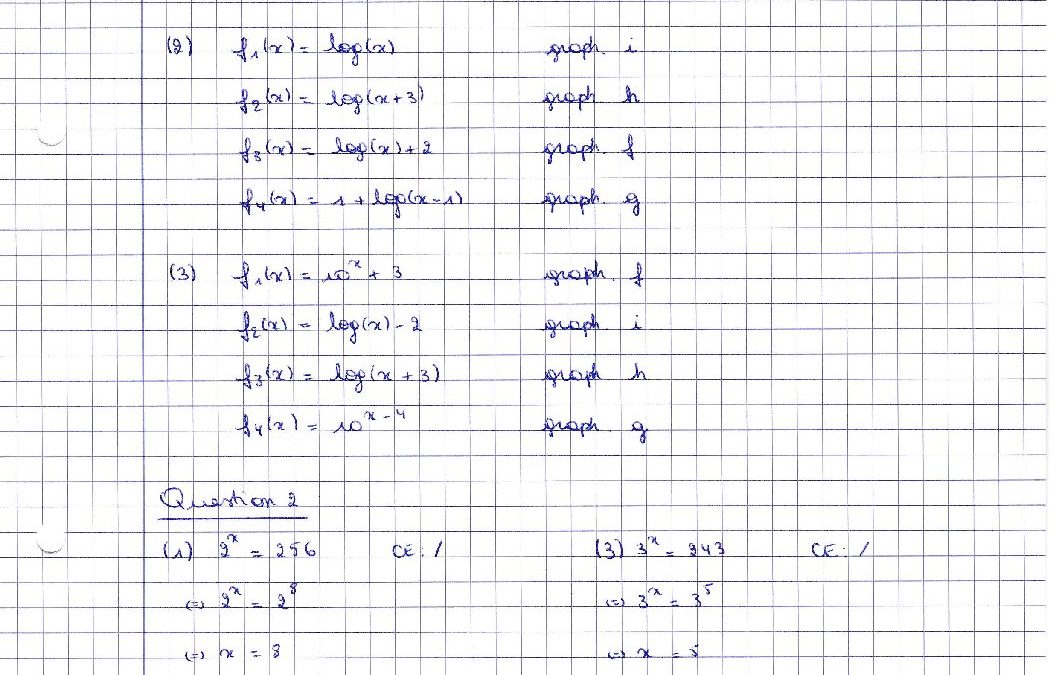 (2) f₁(x) = log(x) graph. i
f₂(x) = log(x+3) graph h
f₃(x) = log(x)+2 graph. f
f₄(x) = 1 + log(x-1) graph. g
(3) f₁(x) = 10ˣ + 3 graph. f
f₂(x) = log(x) - 2 graph i
f₃(x) = log(x + 3) graph h
f₄(x) = 10ˣ⁻⁴ graph g
Question 2
(1) 2ˣ = 256 CE: / (3) 3ˣ = 243 CE: /
(=) 2ˣ = 2⁸ (=) 3ˣ = 3⁵
(=) x = 8 (=) x = 5